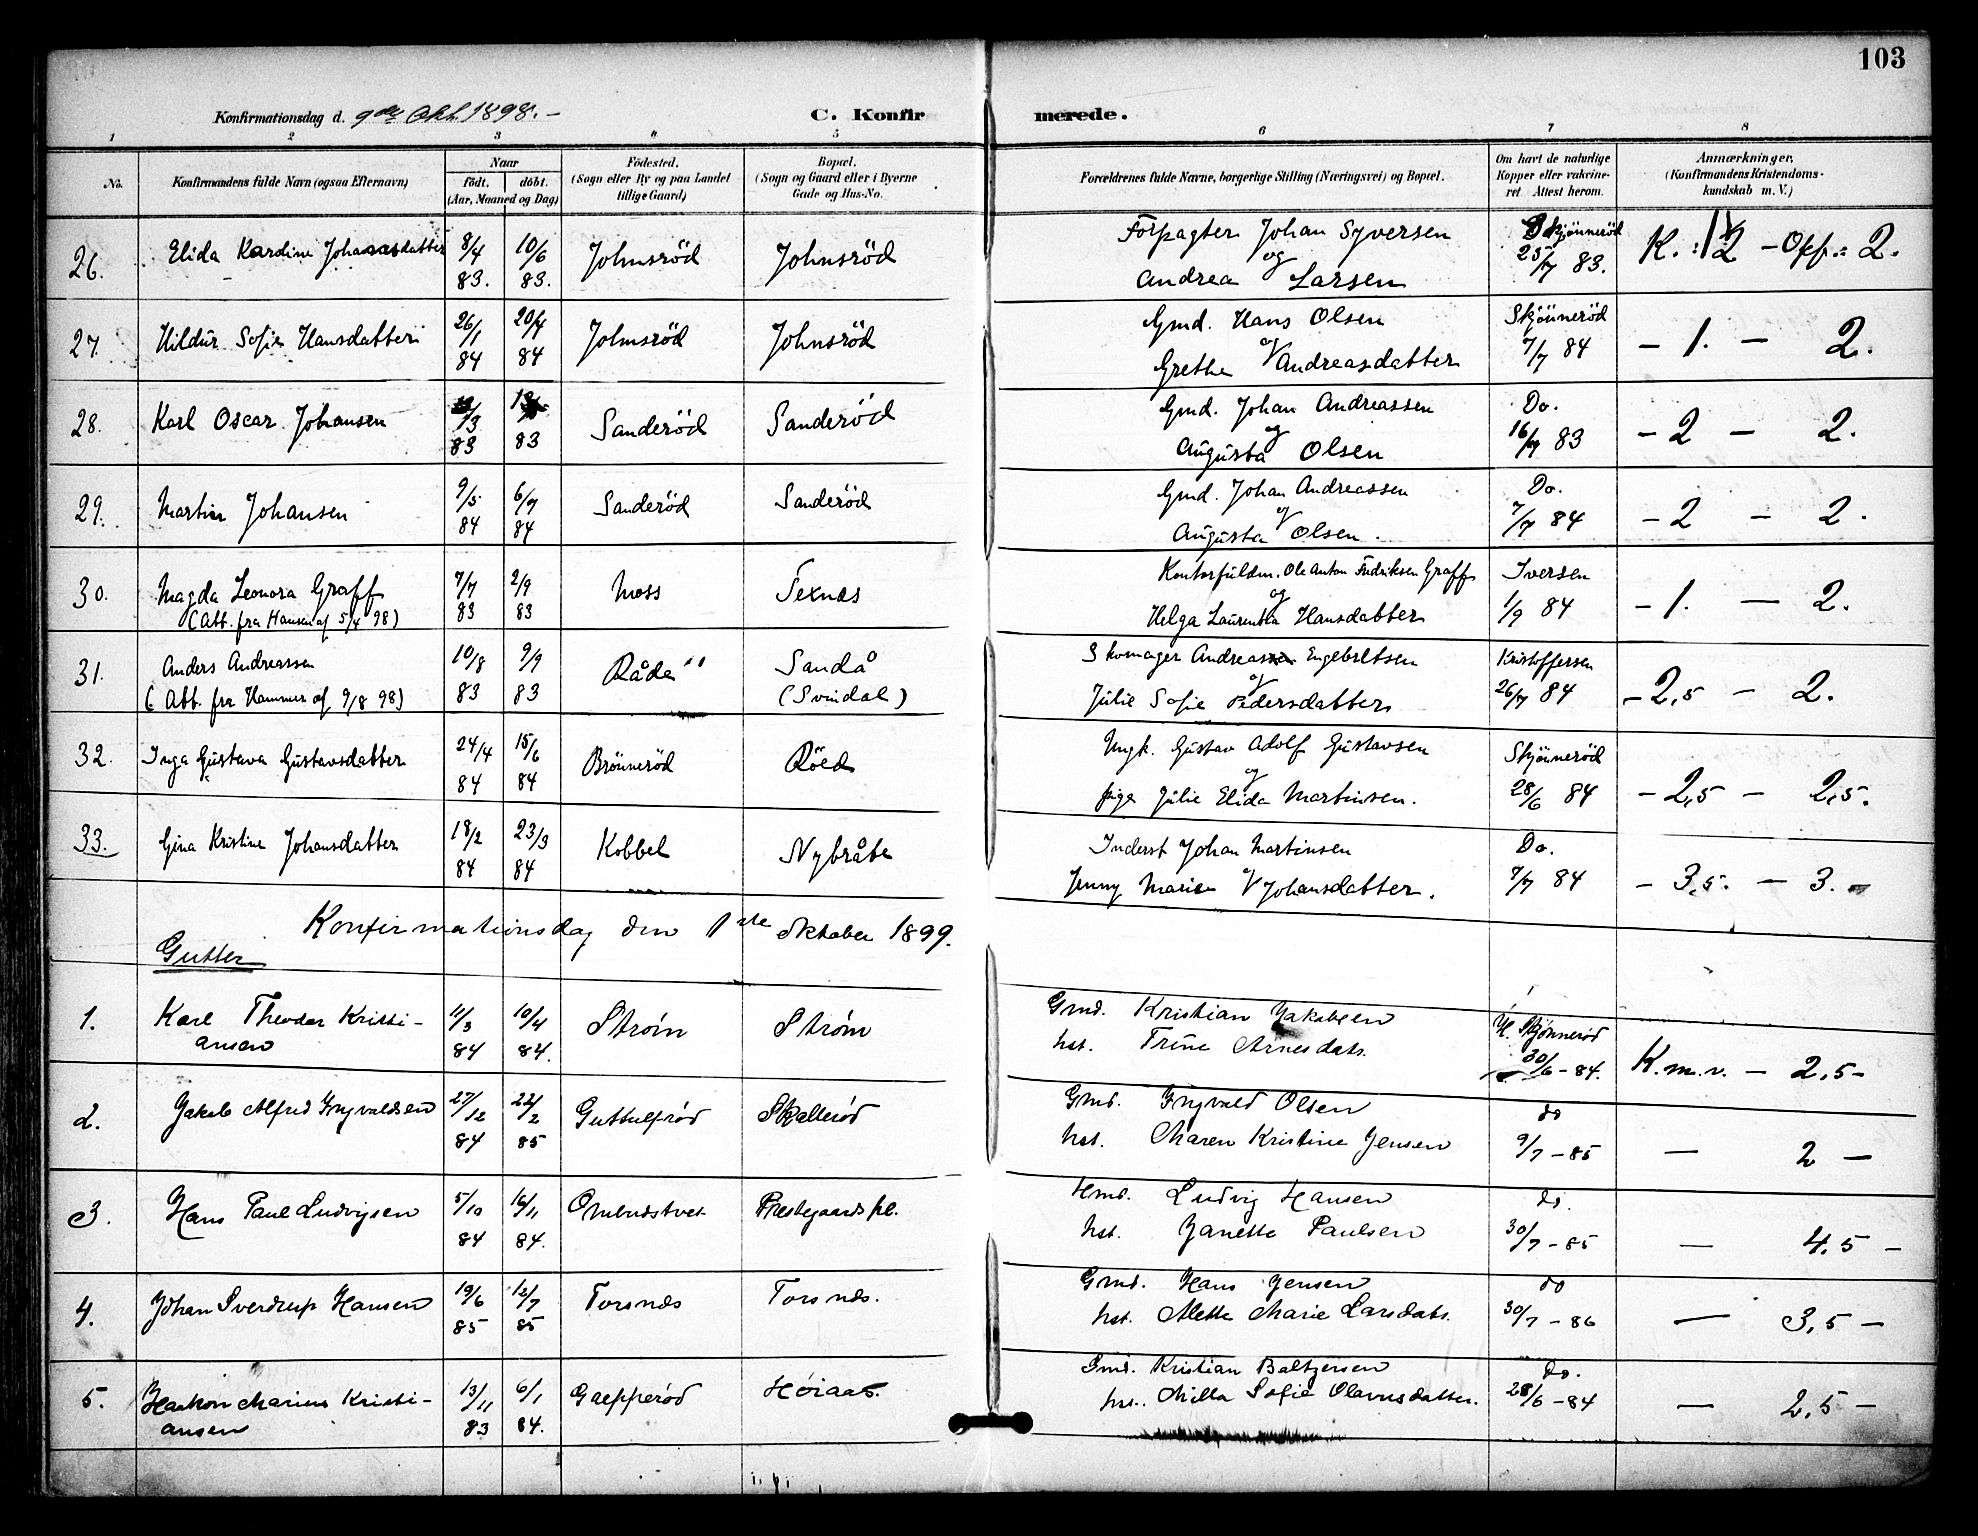 103
Konfirmationsdag d. 9de Okt. 1898. –
C. Konfirmerede.
1 2 3 4 5 6 7 8
No.
Konfirmandens fulde Navn (ogsaa Efternavn)
Naar
født. døbt.
(Aar, Maaned og Dag)
Fødested.
(Sogn eller By og paa Landet
tillige Gaard)
Bopæl.
(Sogn og Gaard eller i Byerne
Gade og Hus-No.
Forældrenes fulde Navne, borgerlige Stilling (Næringsvei) og Bopæl.
Om havt de naturlige
Kopper eller vakcine-
ret. Attest herom.
Anmærkninger.
(Konfirmandens Kristendoms-
kundskab m. V.)
26. Elida Kardine Johansdatter 8/4 83. 10/6 83. Johnsrød Johnsrød Forpagter Johan Syversen og Andrea Larsen Skjønnerød 25/7 83. K.: 2 – Opf.: 2.
27. Hildur Sofie Hansdatter 26/1 84 20/4 84 Johnsrød Johnsrød Gmd. Hans Olsen og Grethe Andreasdatter Skjønnerød 7/7 84 – 1. – 2.
28. Karl Oscar Johansen /3 83 83 Sanderød Sanderød Gmd. Johan Andreassen og Augusta Olsen Do. 16/7 83 – 2 – 2.
29. Martin Johansen 9/5 84 6/7 84 Sanderød Sanderød Gmd. Johan Andreassen og Augusta Olsen. Do. 7/7 84 – 2 – 2.
30. Magda Leonora Graff (Att. fra Hansen af 5/4 98) 7/7 83 2/9 83 Moss Texnæs Kontorfuldm. Ole Anton Fredriksen Graff og Helga Laurentia Hansdatter Iversen 1/9 84 – 1. – 2.
31. Anders Andreassen (Att. fra Hammer af 9/8 98) 10/8 83 9/9 83 Råde Sandå (Svindal) Skomager Andreas Engebretsen og Julie Sofie Pedersdatter Kristoffersen 26/7 84 – 2,5 – 2.
32. Inga Gustava Gustavsdatter 24/4 84 15/6 84 Brønnerød Røed Ungk. Gustav Adolf Gustavsen og pige Julie Elida Martinsen. Skjønnerød 28/6 84 – 2,5 – 2,5.
33. Gina Kristine Johansdatter 18/2 84 23/3 84 Kobbel Nybråte Inderst Johan Martinsen og Jenny Marie Johansdatter. Do. 7/7 84 – 3,5. – 3.
Konfirmationsdag den 1ste Oktober 1899.
Gutter
1. Karl Theodor Kristi-ansen 11/3 84 10/4 84. Strøm Strøm Gmd. Kristian Jakobsen hst. Trine Arnesdatr. H. Skjønnerød 30/6 – 84. K. m. v. – 2,5 –
2. Jakob Alfred Ingvaldsen 27/12 84 22/2 85 Guttulfrød Skallerød Gmd. Ingvald Olsen hst. Maren Kristine Jensen do 9/7 – 85 — 2 —
3. Hans Paul Ludvigsen 5/10 84 16/11 84. Ombudstvet Prestegaardspl. Hmd. Ludvig Hansen hst. Janette Paulsen do. 30/7 – 85 — 4,5 –
4. Johan Sverdrup Hansen 19/6 85 12/7 85 Torsnæs Torsnæs. Gmd. Hans Jensen hst. Mette Marie Larsdatr. do 30/7 – 86 — 3,5 –
5. Haakon Marius Kristi-ansen 13/11 83 6/1 84. Gaepperød Høiaas. Gmd. Kristian Baltzersen hst. Milla Sofie Olavusdatter. Do. 28/6 – 84 — 2,5 –